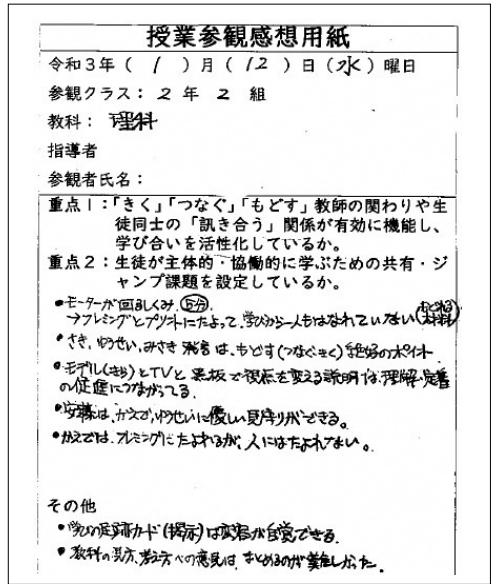 授業参観感想用紙
令和3年(1)月(12)日(水)曜日
参観クラス:2年2組
教科:理科
指導者
参観者氏名:
重点1:「きく」「つなぐ」「もどす」教師の関わりや生
徒同士の「訊き合う」関係が有効に機能し、
学び合いを活性化しているか。
重点2:生徒が主体的・協働的に学ぶための共有・ジ
ャンプ課題を設定しているか。
•モーターが回るしくみ
→フレミングとプリントにたよって、学びから一人もはなれていない
•さき、ゆうせい、みさき 発言は、もどす(つなぐ・きく)絶好のポイント
•モデル(さら)とTVと黒板で視点を変える説明は、理解・定着
の促進につながってる。
•安藤は、かえで、ゆうせいに優しい見守りができる。
•かえでは、フレミングにたよれるが、人にはたよれない。
その他
•学びの足跡カード(掲示)は変容が自覚できる。
•教科の見方、考え方への意見は、まとめるのが難しかった。